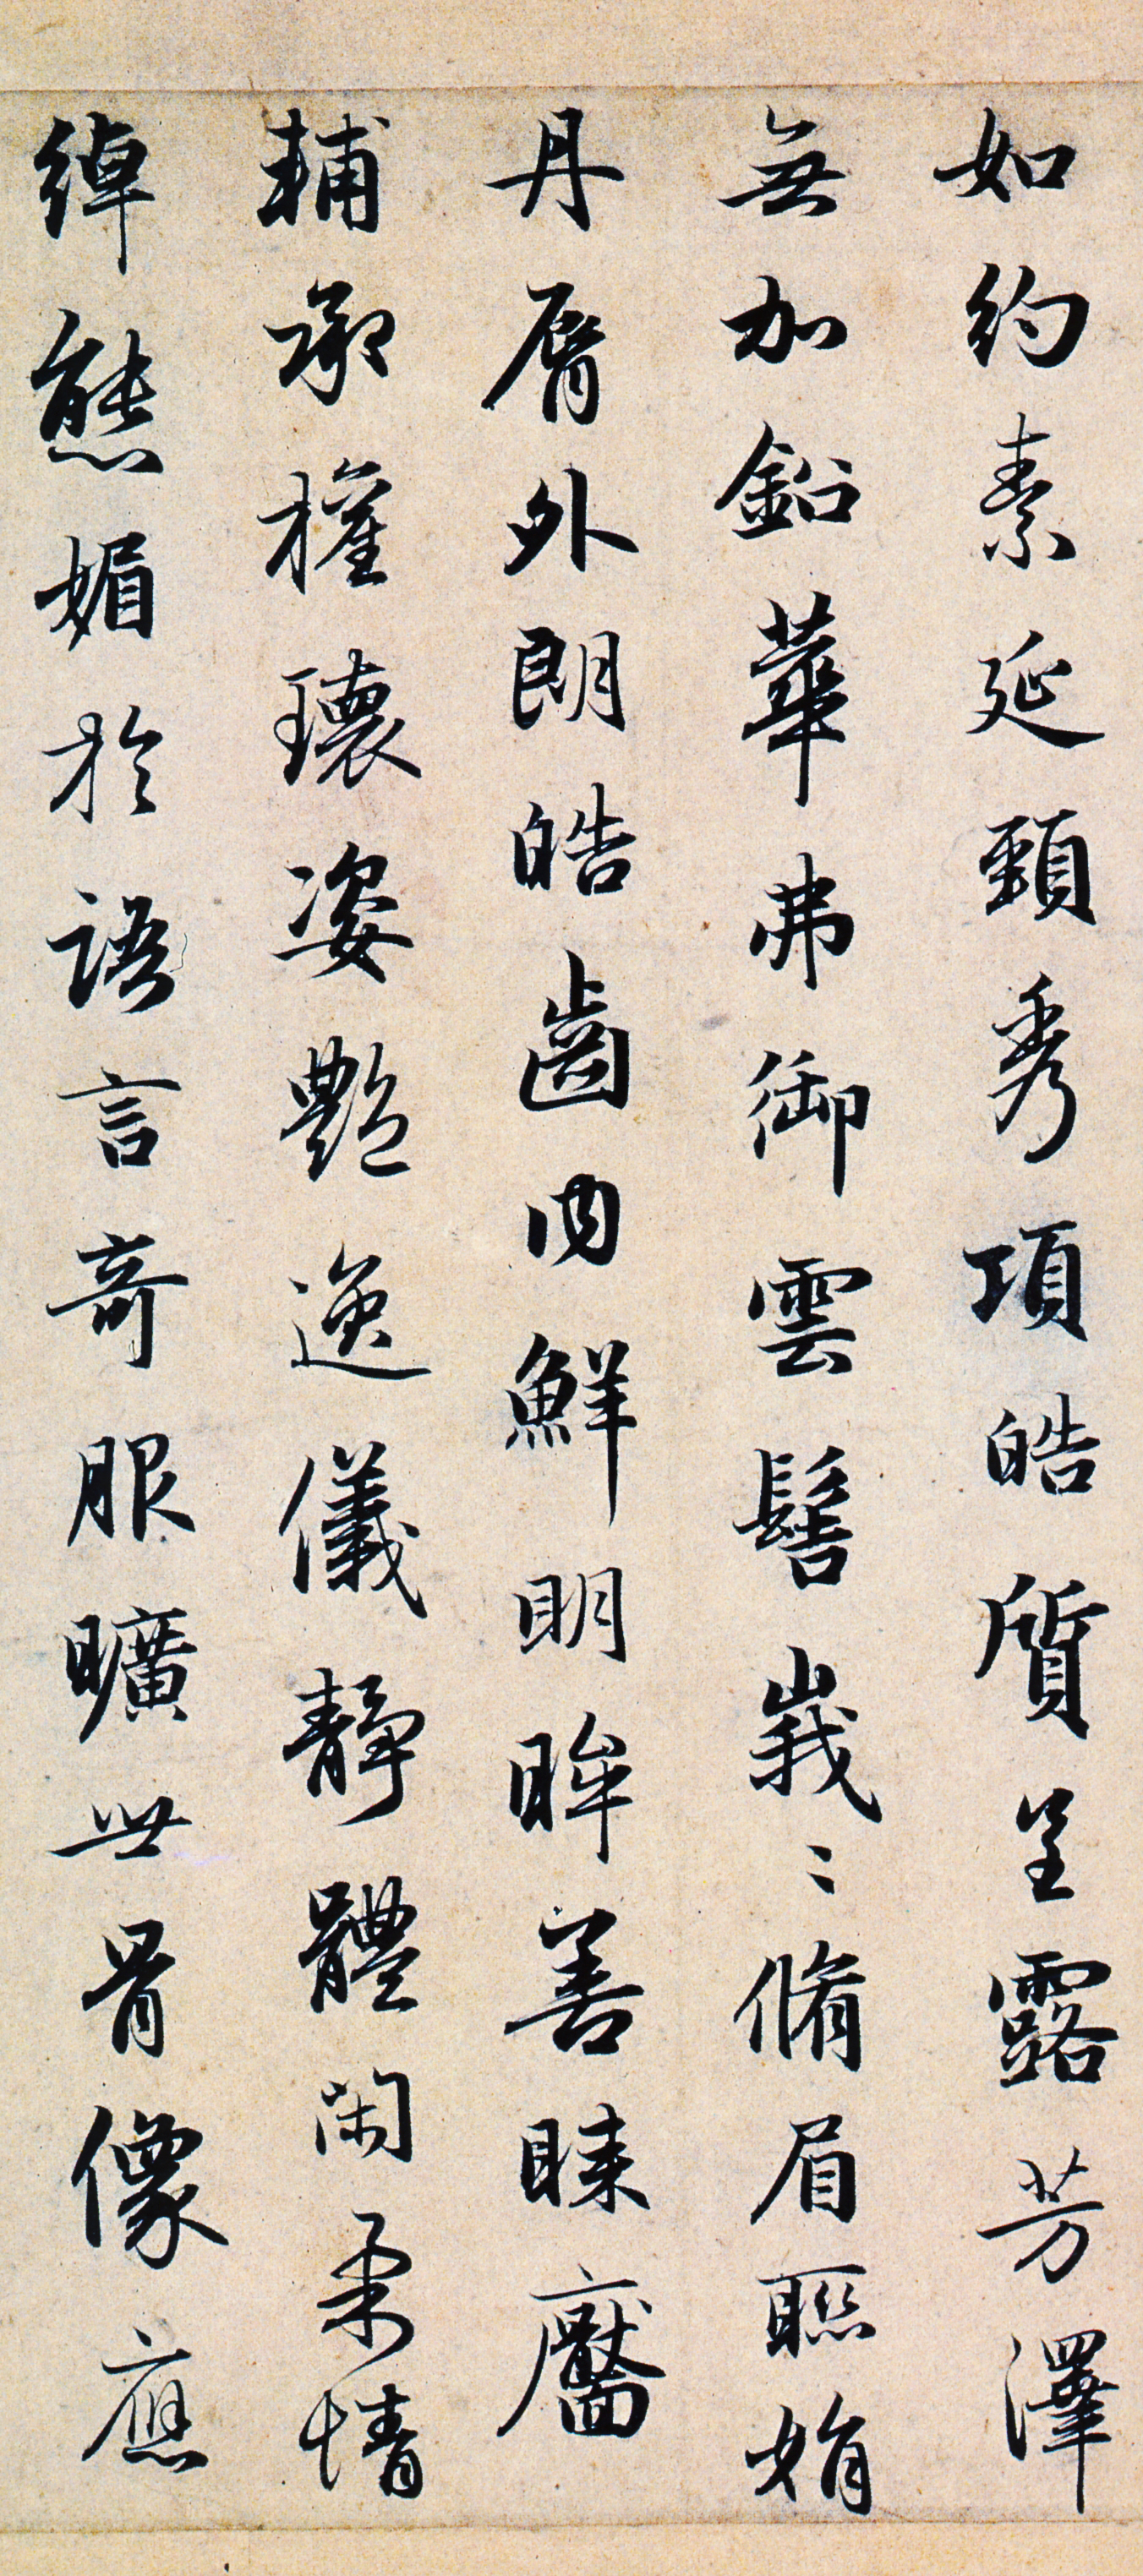 如約素延頸秀項皓質呈露芳澤
無加鉛華弗御雲髻峩〻脩眉聯娟
丹脣外朗皓齒内鮮明眸善睞靨
輔承權瓌姿艶逸儀靜體閑柔情
綽態媚於語言奇服曠世骨像應